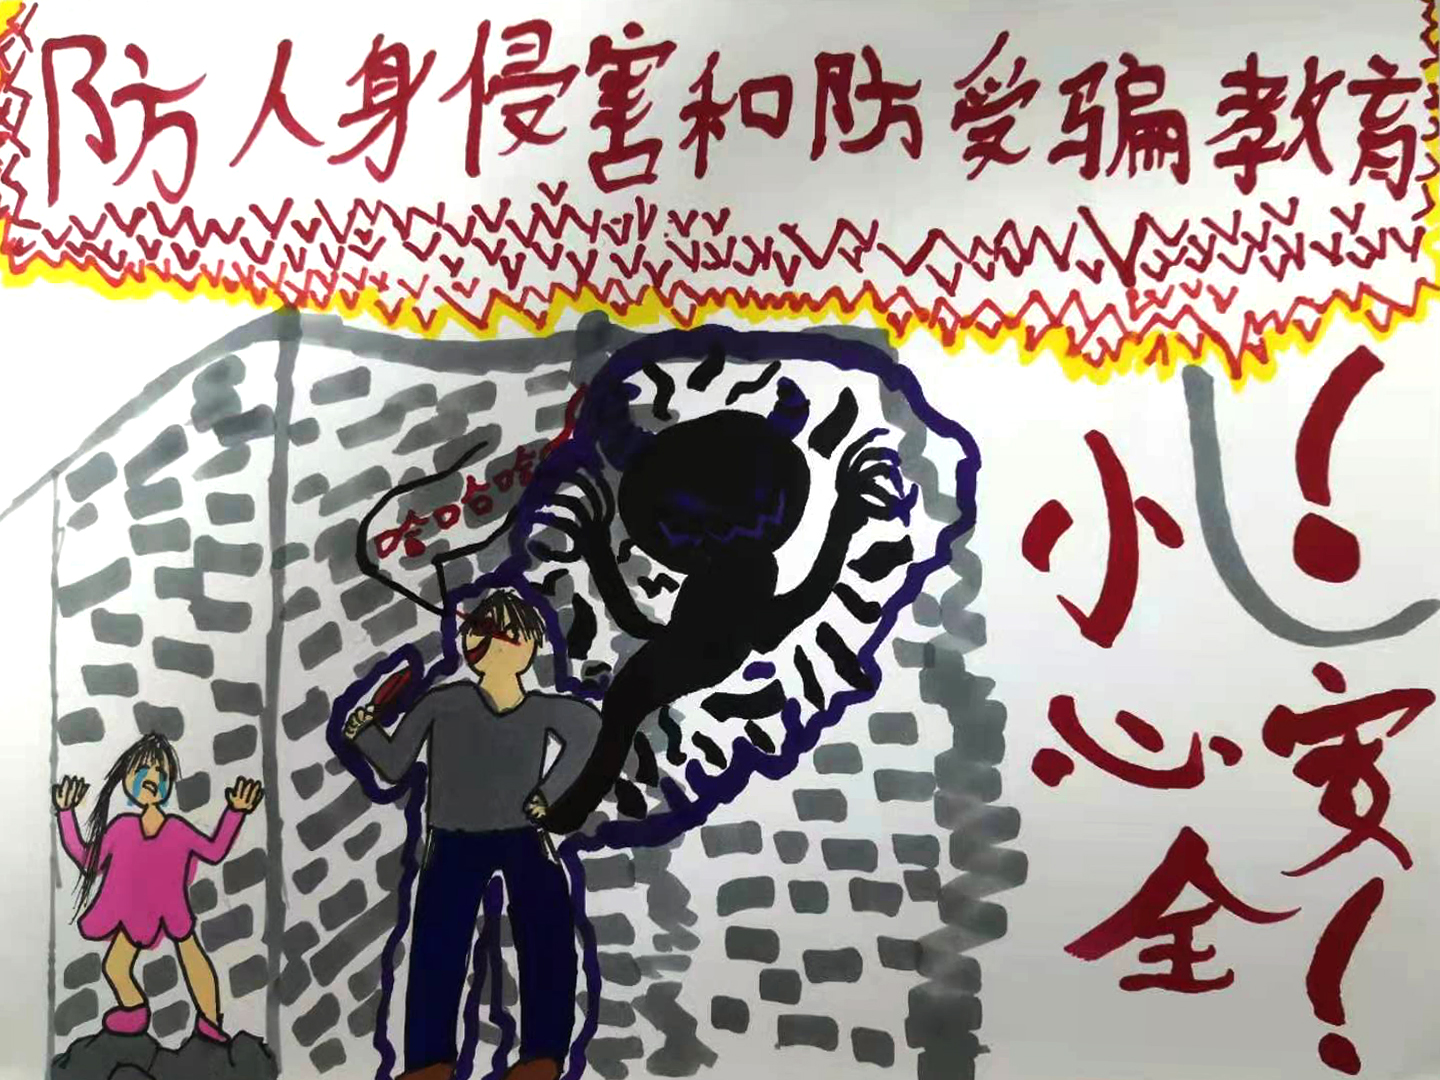 防人身侵害和防受骗教育
哈哈哈哈
小心!
安全!